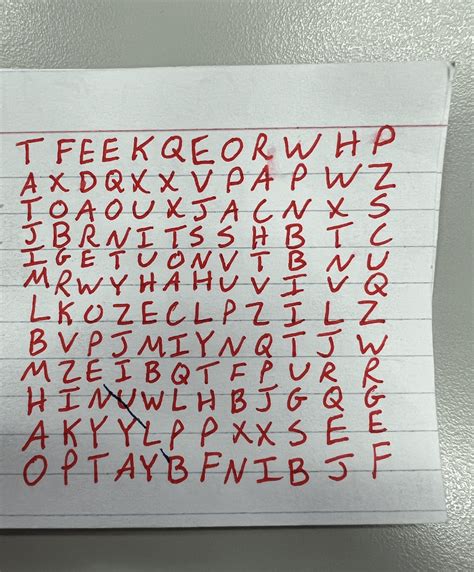 T F E E K Q E O R W H P
A X D Q X X V P A P W Z
T O A O U X J A C N X S
J B R N I T S S H B T C
I G E T U O N V T B N U
M R W Y H A H U V I V Q
L K O Z E C L P Z I L Z
B V P J M I Y N Q T J W
M Z E I B Q T F P U R R
H I N U W L H B J G Q G
A K Y Y L P P X X S E E
O P T A Y B F N I B J F